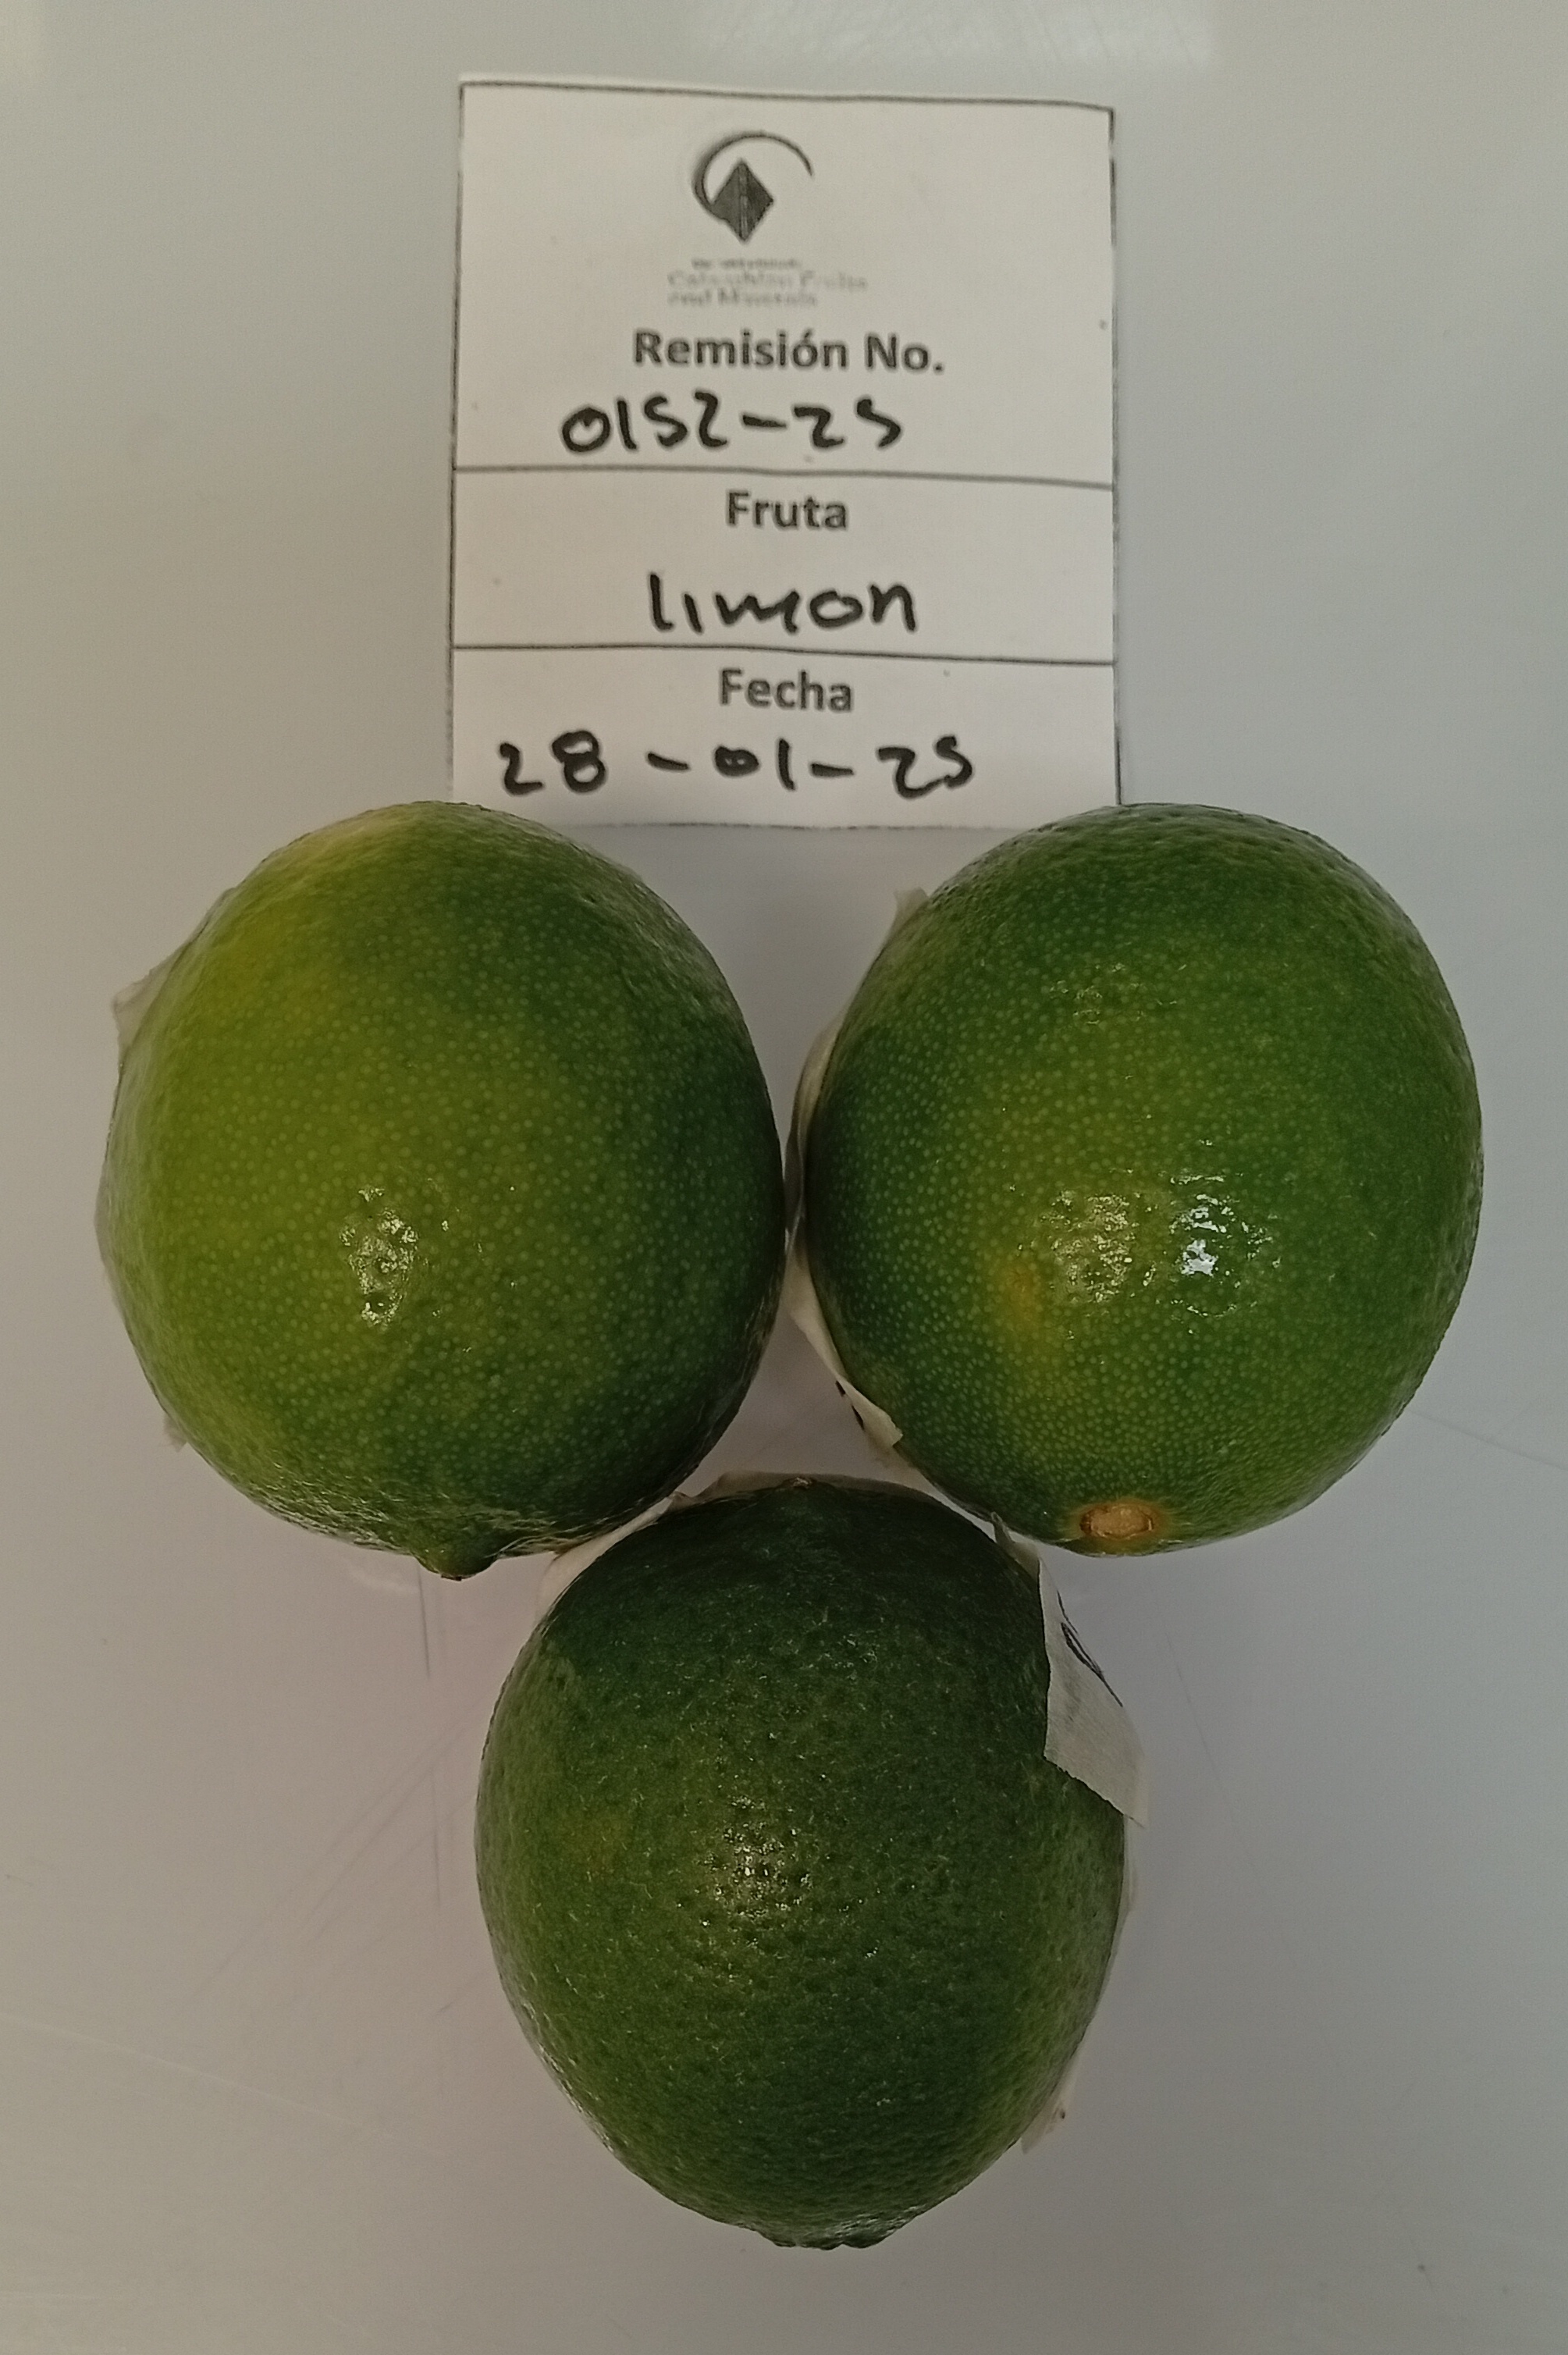 Colombian Fruits
and Minerals
Remisión No.
0152-25
Fruta
limon
Fecha
28-01-25